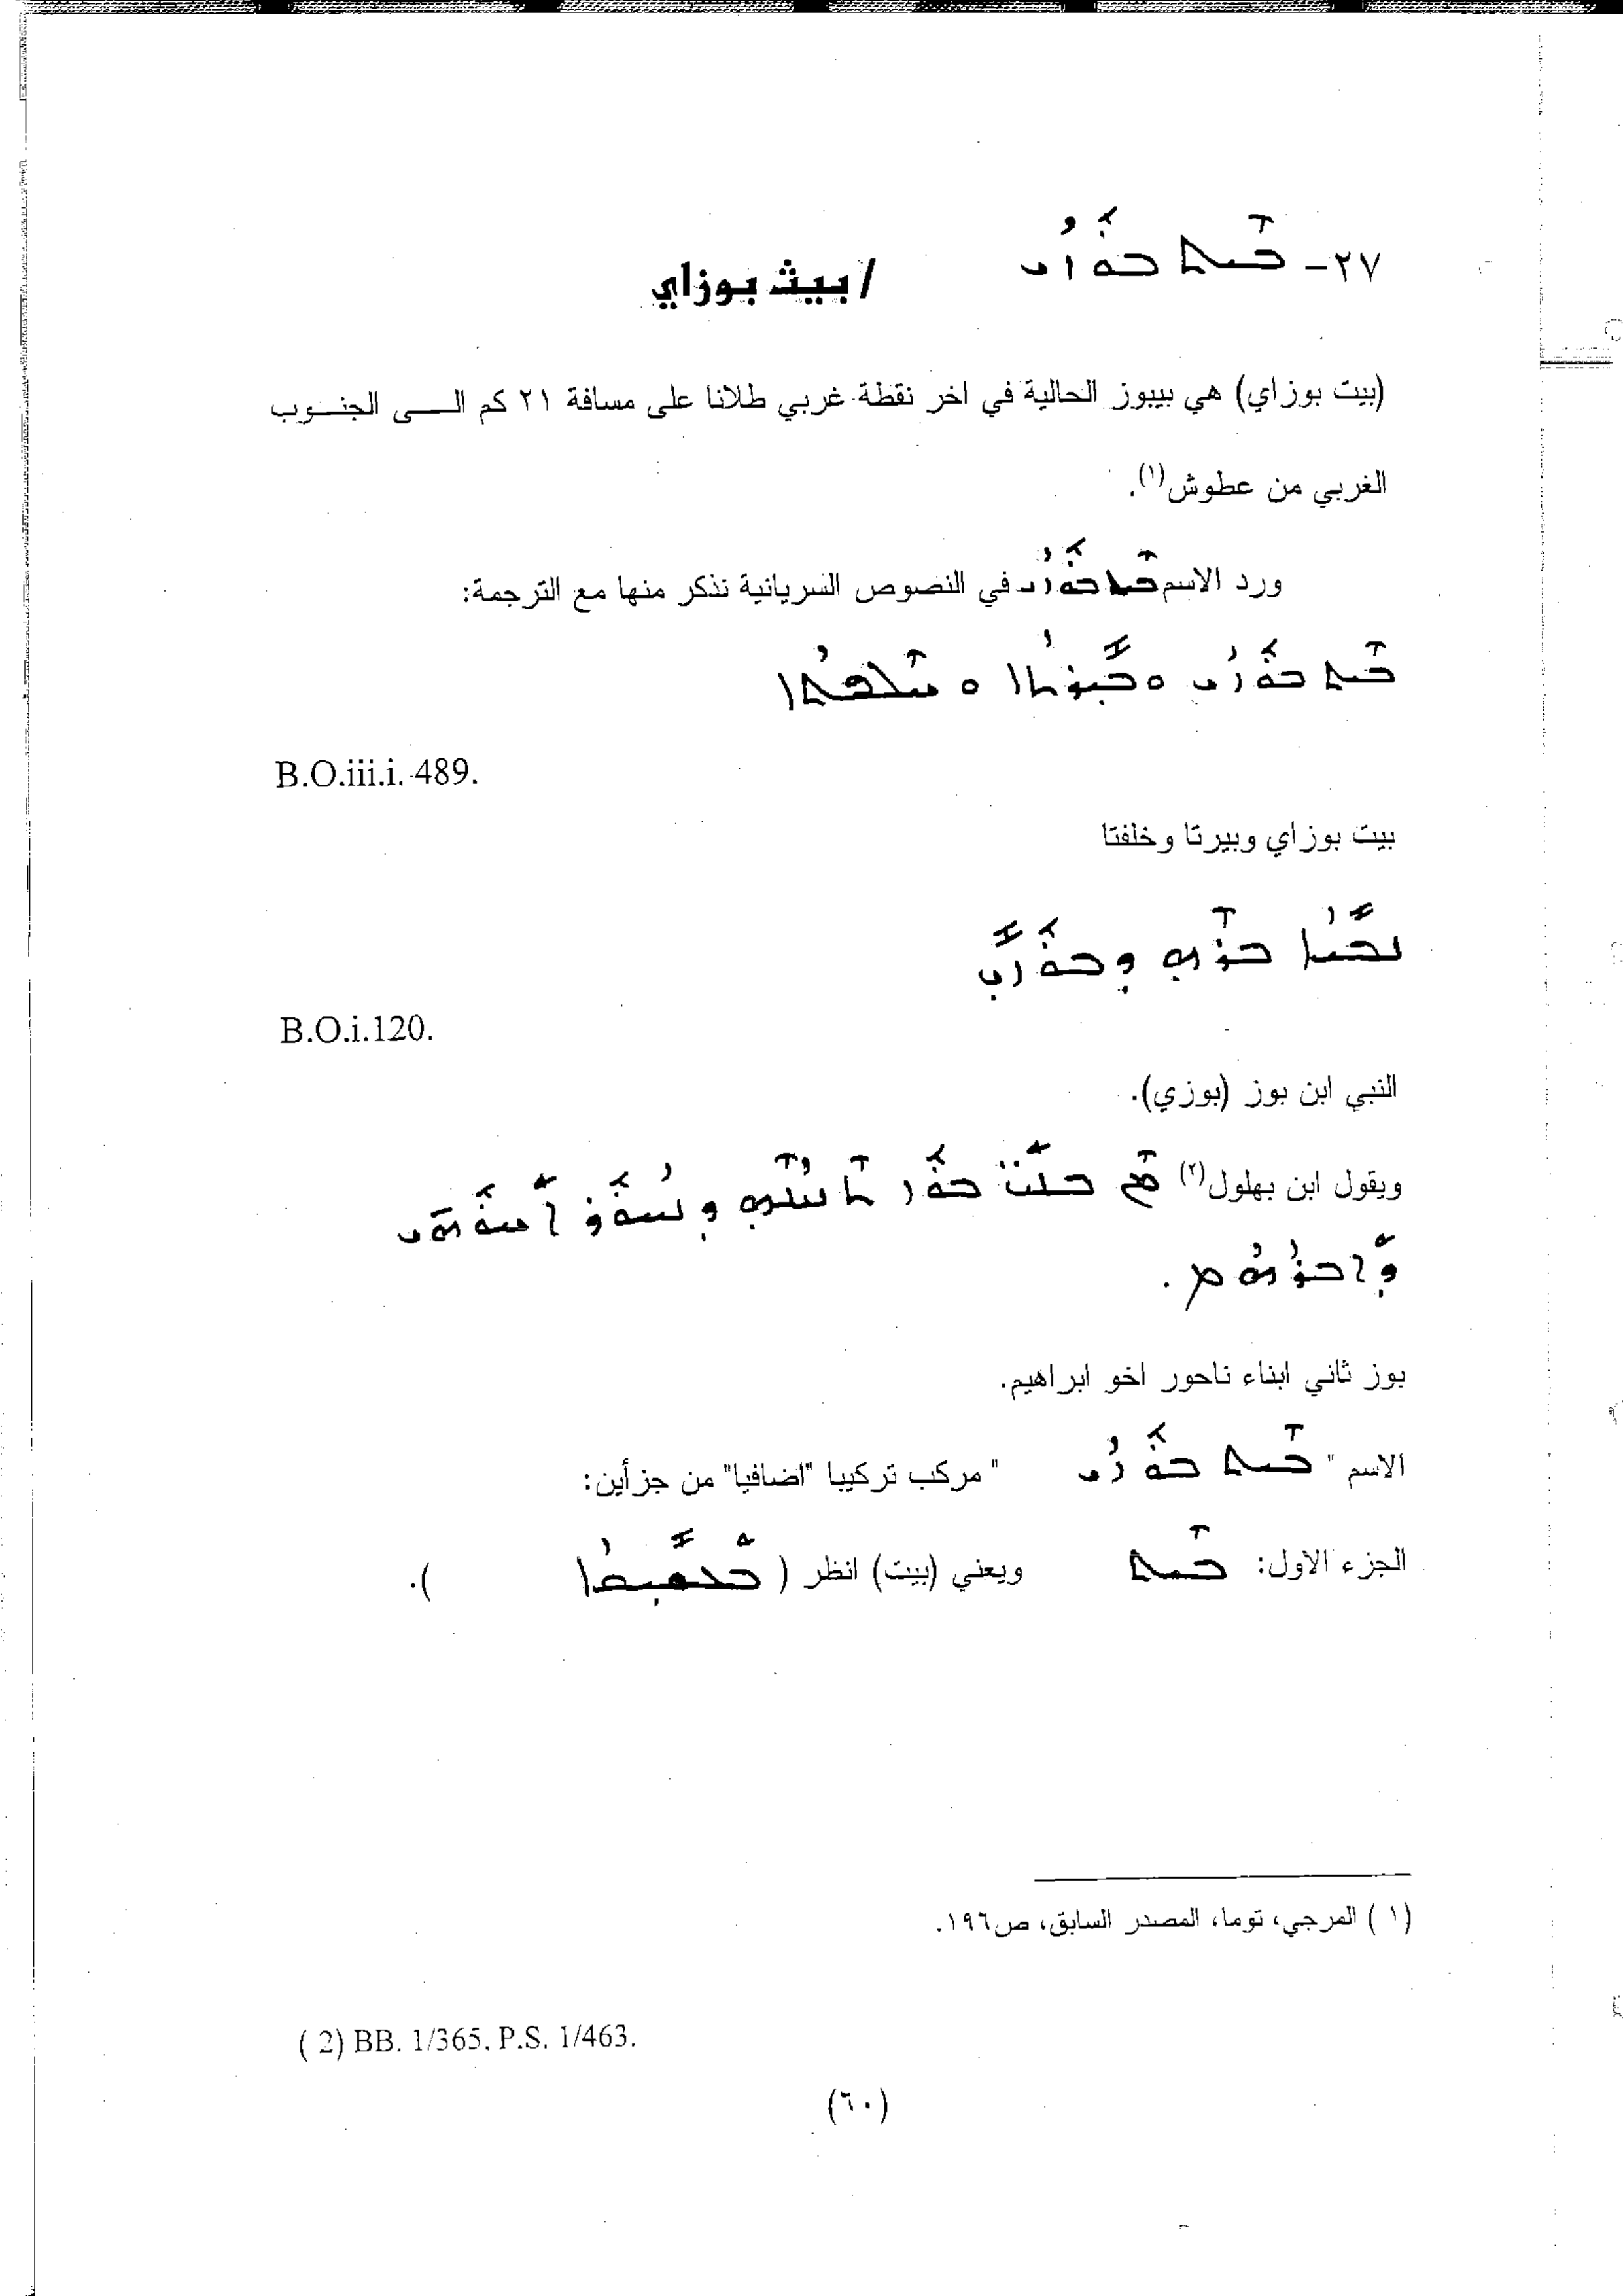 ٢٧- ܒܝܬ ܒܘܙܝ / بيث بوزاي
(بيت بوزاي) هي بيبوز الحالية في اخر نقطة غربي طلانا على مسافة ٢١ كم الى الجنوب
الغربي من عطوش(١).
ورد الاسم ܒܝܬ ܒܘܙܝ في النصوص السريانية نذكر منها مع الترجمة:
ܒܝܬ ܒܘܙܝ ܘܒܝܪܬܐ ܘ ܚܠܦܬܐ
B.O.iii.i. 489.
بيت بوزاي وبيرتا وخلفتا
ܢܒܝܐ ܒܪܗ ܕܒܘܙܝ
B.O.i.120.
النبي ابن بوز (بوزي).
ويقول ابن بهلول(٢) ܒܘܙ ܕܢܚܘܪ ܐܚܘܗܝ
ܕܐܒܪܗܡ .
بوز ثاني ابناء ناحور اخو ابراهيم.
الاسم " ܒܝܬ ܒܘܙܝ " مركب تركيبا "اضافيا" من جزأين:
الجزء الاول: ܒܝܬ ويعني (بيت) انظر ( ).
(١) المرجي، توما، المصدر السابق، ص١٩٦.
( 2) BB. 1/365. P.S. 1/463.
(٦٠)